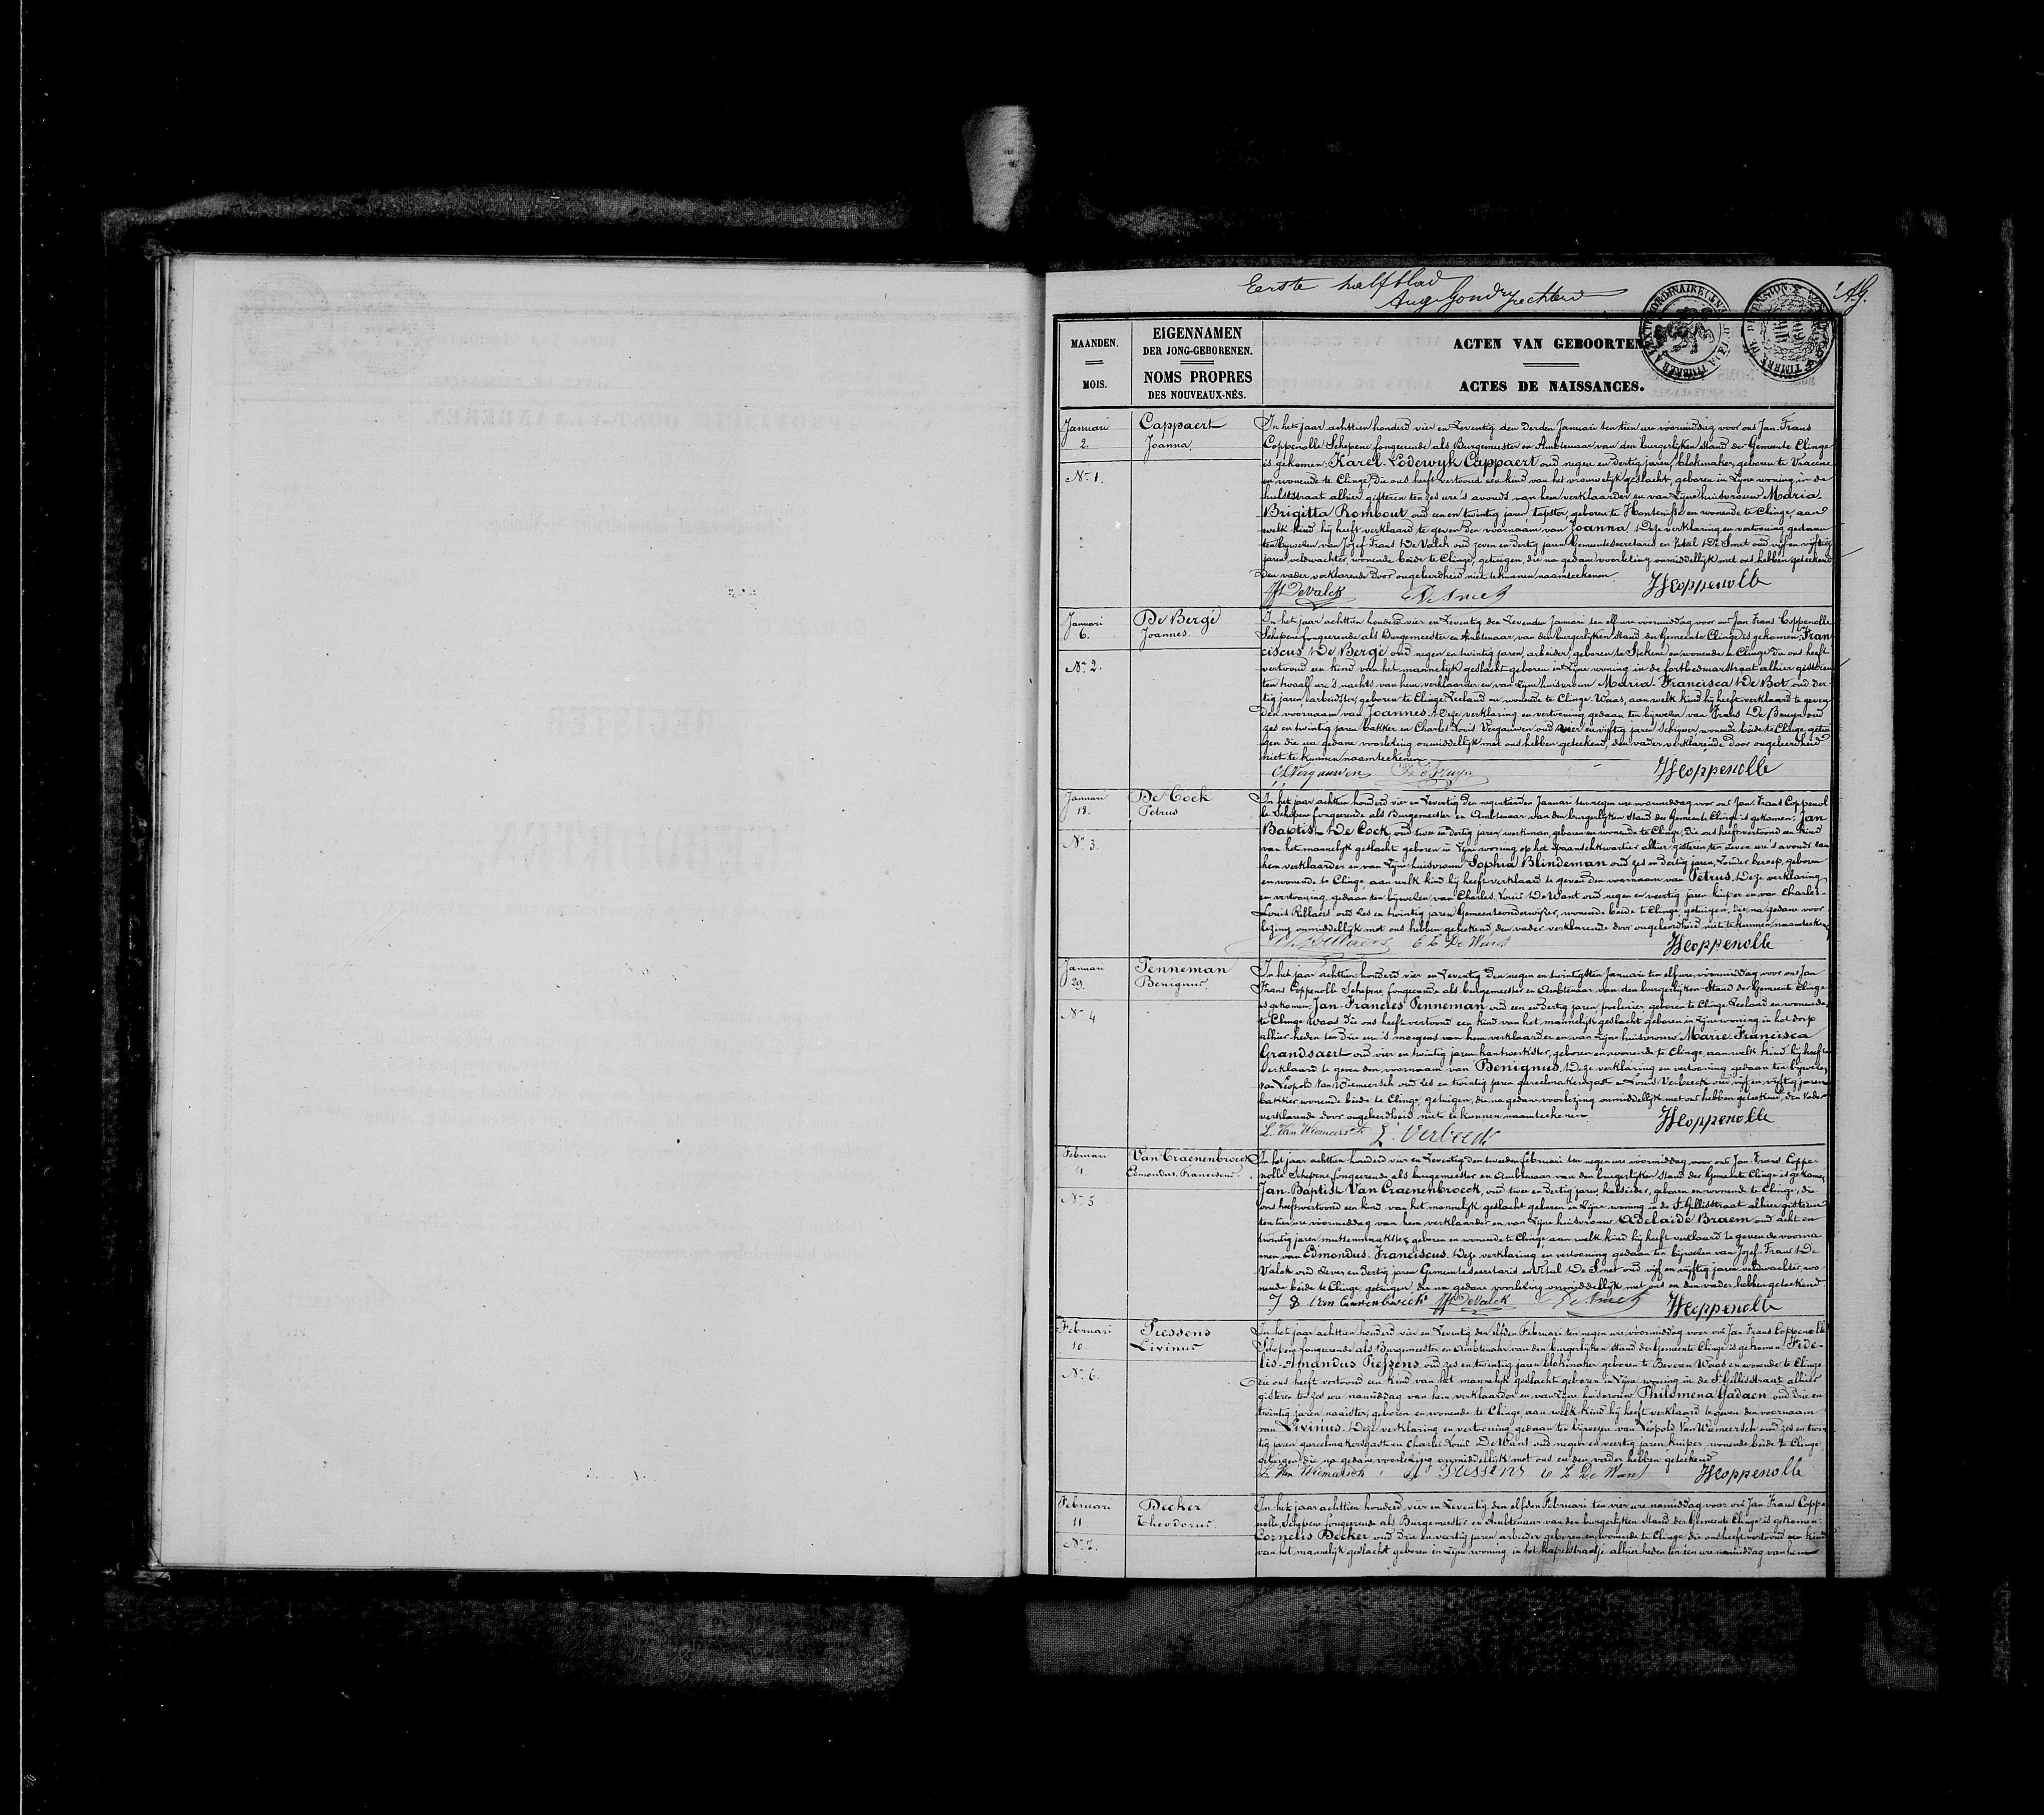 Eerste halfblad
MAANDEN.
MOIS.
EIGENNAMEN
DER JONG-GEBORENEN.
NOMS PROPRES
DES NOUVEAUX-NÉS.
ACTEN VAN GEBOORTEN
ACTES DE NAISSANCES.
Januari
2.
No 1.
Cappaert
Joanna,
In het jaar achttien honderd vier en Zeventig den derden Januari ten tien ure voormiddag, voor ons Jan Frans
Coppenolle Schepene fongeerende als Burgemeester en Ambtenaar van den burgerlijken stand der Gemeente Clinge
is gekomen: Karel Lodewyk Cappaert oud negen en dertig jaren, blokmaker, geboren te Vracene
en wonende te Clinge, die ons heeft vertoond een kind van het vrouwelijk geslacht, geboren in zijne woning in de
hulststraat alhier gisteren ten zes ure 's avonds van hem verklaarder en van zijne huisvrouw Maria
Brigitta Rombout oud een en twintig jaren, tapster, geboren te Hontenisse en wonende te Clinge, aan
welk kind hij heeft verklaard te geven den voornaam van Joanna. Deze verklaring en vertooning gedaan
ten bijwelen van Jozef Frans De Valck oud zeven en dertig jaren Gemeentesecretaris en Vital De Smet oud vijf en vijftig
jaren veldwachter, wonende beide te Clinge, getuigen, die na gedane voorlezing onmiddellijk met ons hebben geteekend
den vader verklarende door ongeleerdheid niet te kunnen naamteekenen
JF DeValck De Smet JFCoppenolle
Januari
6.
No 2.
De Bergé
Joannes.
In het jaar achttien honderd vier en Zeventig den Zevenden Januari ten elf ure voormiddag voor ons Jan Frans Coppenolle
Schepene fongeerende als Burgemeester en Ambtenaar van den burgerlijken stand der Gemeente Clinge is gekomen: Fran
ciscus De Bergé oud negen en twintig jaren, arbeider, geboren te Stekene en wonende te Clinge die ons heeft
vertoond een kind van het mannelijk geslacht geboren in zijne woning in de fortbedmarstraat alhier gisteren
ten twaalf ure 's nachts van hem verklaarder en van zijne huisvrouw Maria Francisca De Bot oud der-
tig jaren, arbeidster, geboren te Clinge Zeeland en wonende te Clinge Waas, aan welk kind hij heeft verklaard te geven
den voornaam van Joannes. Deze verklaring en vertooning gedaan ten bijwelen van Frans De Bruyn oud
zes en twintig jaren bakker en Charles Louis Vergauwen oud vier en vijftig jaren Schrijver, wonende beide te Clinge, getui
gen die na gedane voorlezing onmiddellijk met ons hebben geteekend, den vader verklarende door ongeleerdheid
niet te kunnen naamteekenen
CL Vergauwen F De Bruyn JFCoppenolle
Januari
18.
No 3.
De Cock
Petrus
In het jaar achttien honderd vier en Zeventig den negentienden Januari ten negen ure voormiddag voor ons Jan Frans Coppenol
le Schepene fongeerende als Burgemeester en Ambtenaar van den burgerlijken stand der Gemeente Clinge is gekomen: Jan
Baptist De Cock, oud twee en dertig jaren, werkman, geboren en wonende te Clinge, die ons heeft vertoond een kind
van het mannelijk geslacht geboren in zijne woning op het spaanschkwartier alhier gisteren ten zeven ure 's avonds van
hem verklaarder en van zijne huisvrouw Sophia Blindeman oud zes en dertig jaren, zonder beroep, geboren
en wonende te Clinge, aan welk kind hij heeft verklaard te geven den voornaam van Petrus. Deze verklaring
en vertooning gedaan ten bijwelen van Charles Louis De Want oud negen en veertig jaren kuiper en van Charles-
Louis oud zes en twintig jaren Gemeenteonderwijzer, wonende beide te Clinge, getuigen, die na gedane voor
lezing onmiddellijk met ons hebben geteekend, den vader verklarende door ongeleerdheid niet te kunnen naamteeken
C L De Want JFCoppenolle
Januari
29.
No 4
Penneman
Benignus.
In het jaar achttien honderd vier en Zeventig den negen en twintigsten Januari ten elf ure voormiddag voor ons Jan
Frans Coppenolle Schepene fongeerende als burgemeester en Ambtenaar van den burgerlijken Stand der Gemeente Clinge
is gekomen: Jan Francies Penneman oud een en dertig jaren, poelenier geboren te Clinge Zeeland en wonende
te Clinge Waas die ons heeft vertoond een kind van het mannelijk geslacht geboren in zijne woning in het dorp
alhier heden ten drie ure 's morgens van hem verklaarder en van zijne huisvrouw Marie Francisca
Grandsaert oud vier en twintig jaren kantwerkster, geboren en wonende te Clinge, aan welk kind hij heeft
verklaard te geven den voornaam van Benignus. Deze verklaring en vertooning gedaan ten bijwelen
van Leopold Van Wiemeersch oud zes en twintig jaren gareelmakersgast en Louis Verbeeck oud vijf en vijftig jaren
bakker wonende beide te Clinge, getuigen, die na gedane voorlezing onmiddellijk met ons hebben geteekend, den Vader
verklarende door ongeleerdheid niet te kunnen naamteekenen
L. Van Wiemeersch L. Verbeeck JFCoppenolle
Februari
1.
No 5
Van Craenenbroeck
Edmondus, Franciscus.
In het jaar achttien honderd vier en Zeventig den tweeden februari ten negen ure voormiddag voor ons Jan Frans Coppe-
nolle Schepene fongeerende als burgemeester en Ambtenaar van den burgerlijken stand der Gemeente Clinge is gekomen:
Jan Baptist Van Craenenbroeck, oud twee en dertig jaren, geboren en wonende te Clinge, die
ons heeft vertoond een kind van het mannelijk geslacht geboren in zijne woning in de St Gillisstraat alhier gisteren
ten tien ure voormiddag van hem verklaarder en van zijne huisvrouw Adelaïde Braem oud acht en
twintig jaren, mutsenmaakster, geboren en wonende te Clinge aan welk kind hij heeft verklaard te geven de voorna
men van Edmondus, Franciscus. Deze verklaring en vertooning gedaan ten bijwelen van Jozef Frans De
Valck oud zeven en dertig jaren Gemeentesecretaris en Vital De Smet oud vijf en vijftig jaren veldwachter, wo-
nende beide te Clinge, getuigen, die na gedane voorlezing onmiddellijk met ons en den vader hebben geteekend.
J B Van Craenenbroeck JF DeValck De Smet JFCoppenolle
Februari
10.
No 6.
Piessens
Livinus
In het jaar achttien honderd vier en Zeventig den elfden Februari ten negen ure voormiddag voor ons Jan Frans Coppenolle
Schepene fongeerende als Burgemeester en Ambtenaar van den burgerlijken stand der Gemeente Clinge is gekomen: Fide-
lis Amandus Piessens oud zes en twintig jaren blokmaker geboren te Beveren Waas en wonende te Clinge
die ons heeft vertoond een kind van het mannelijk geslacht geboren in zijne woning in de St Gillisstraat alhier
gisteren ten zes ure namiddag van hem verklaarder en van zijne huisvrouw Philomena Gadaen oud drie en
twintig jaren naaister, geboren en wonende te Clinge, aan welk kind hij heeft verklaard te geven den voornaam
van Livinus. Deze verklaring en vertooning gedaan ten bijwezen van Leopold Van Wiemeersch oud zes en twin
tig jaren gareelmakersgast en Charles Louis De Want oud negen en veertig jaren kuiper, wonende beide te Clinge
getuigen, die na gedane voorlezing onmiddellijk met ons en den vader hebben geteekend
L. Van Wiemeersch Piessens C L De Want JFCoppenolle
Februari
11
No 7.
Decker
Theodorus.
In het jaar achttien honderd, vier en Zeventig den elfden Februari ten vier ure namiddag voor ons Jan Frans Coppe
nolle, Schepene fongeerende als Burgemeester en Ambtenaar van den burgerlijken stand der Gemeente Clinge is gekomen:
Cornelis Decker oud drie en veertig jaren arbeider geboren en wonende te Clinge die ons heeft vertoond een kind
van het mannelijk geslacht geboren in zijne woning in het kapelstraatje alhier heden ten een ure namiddag van hem